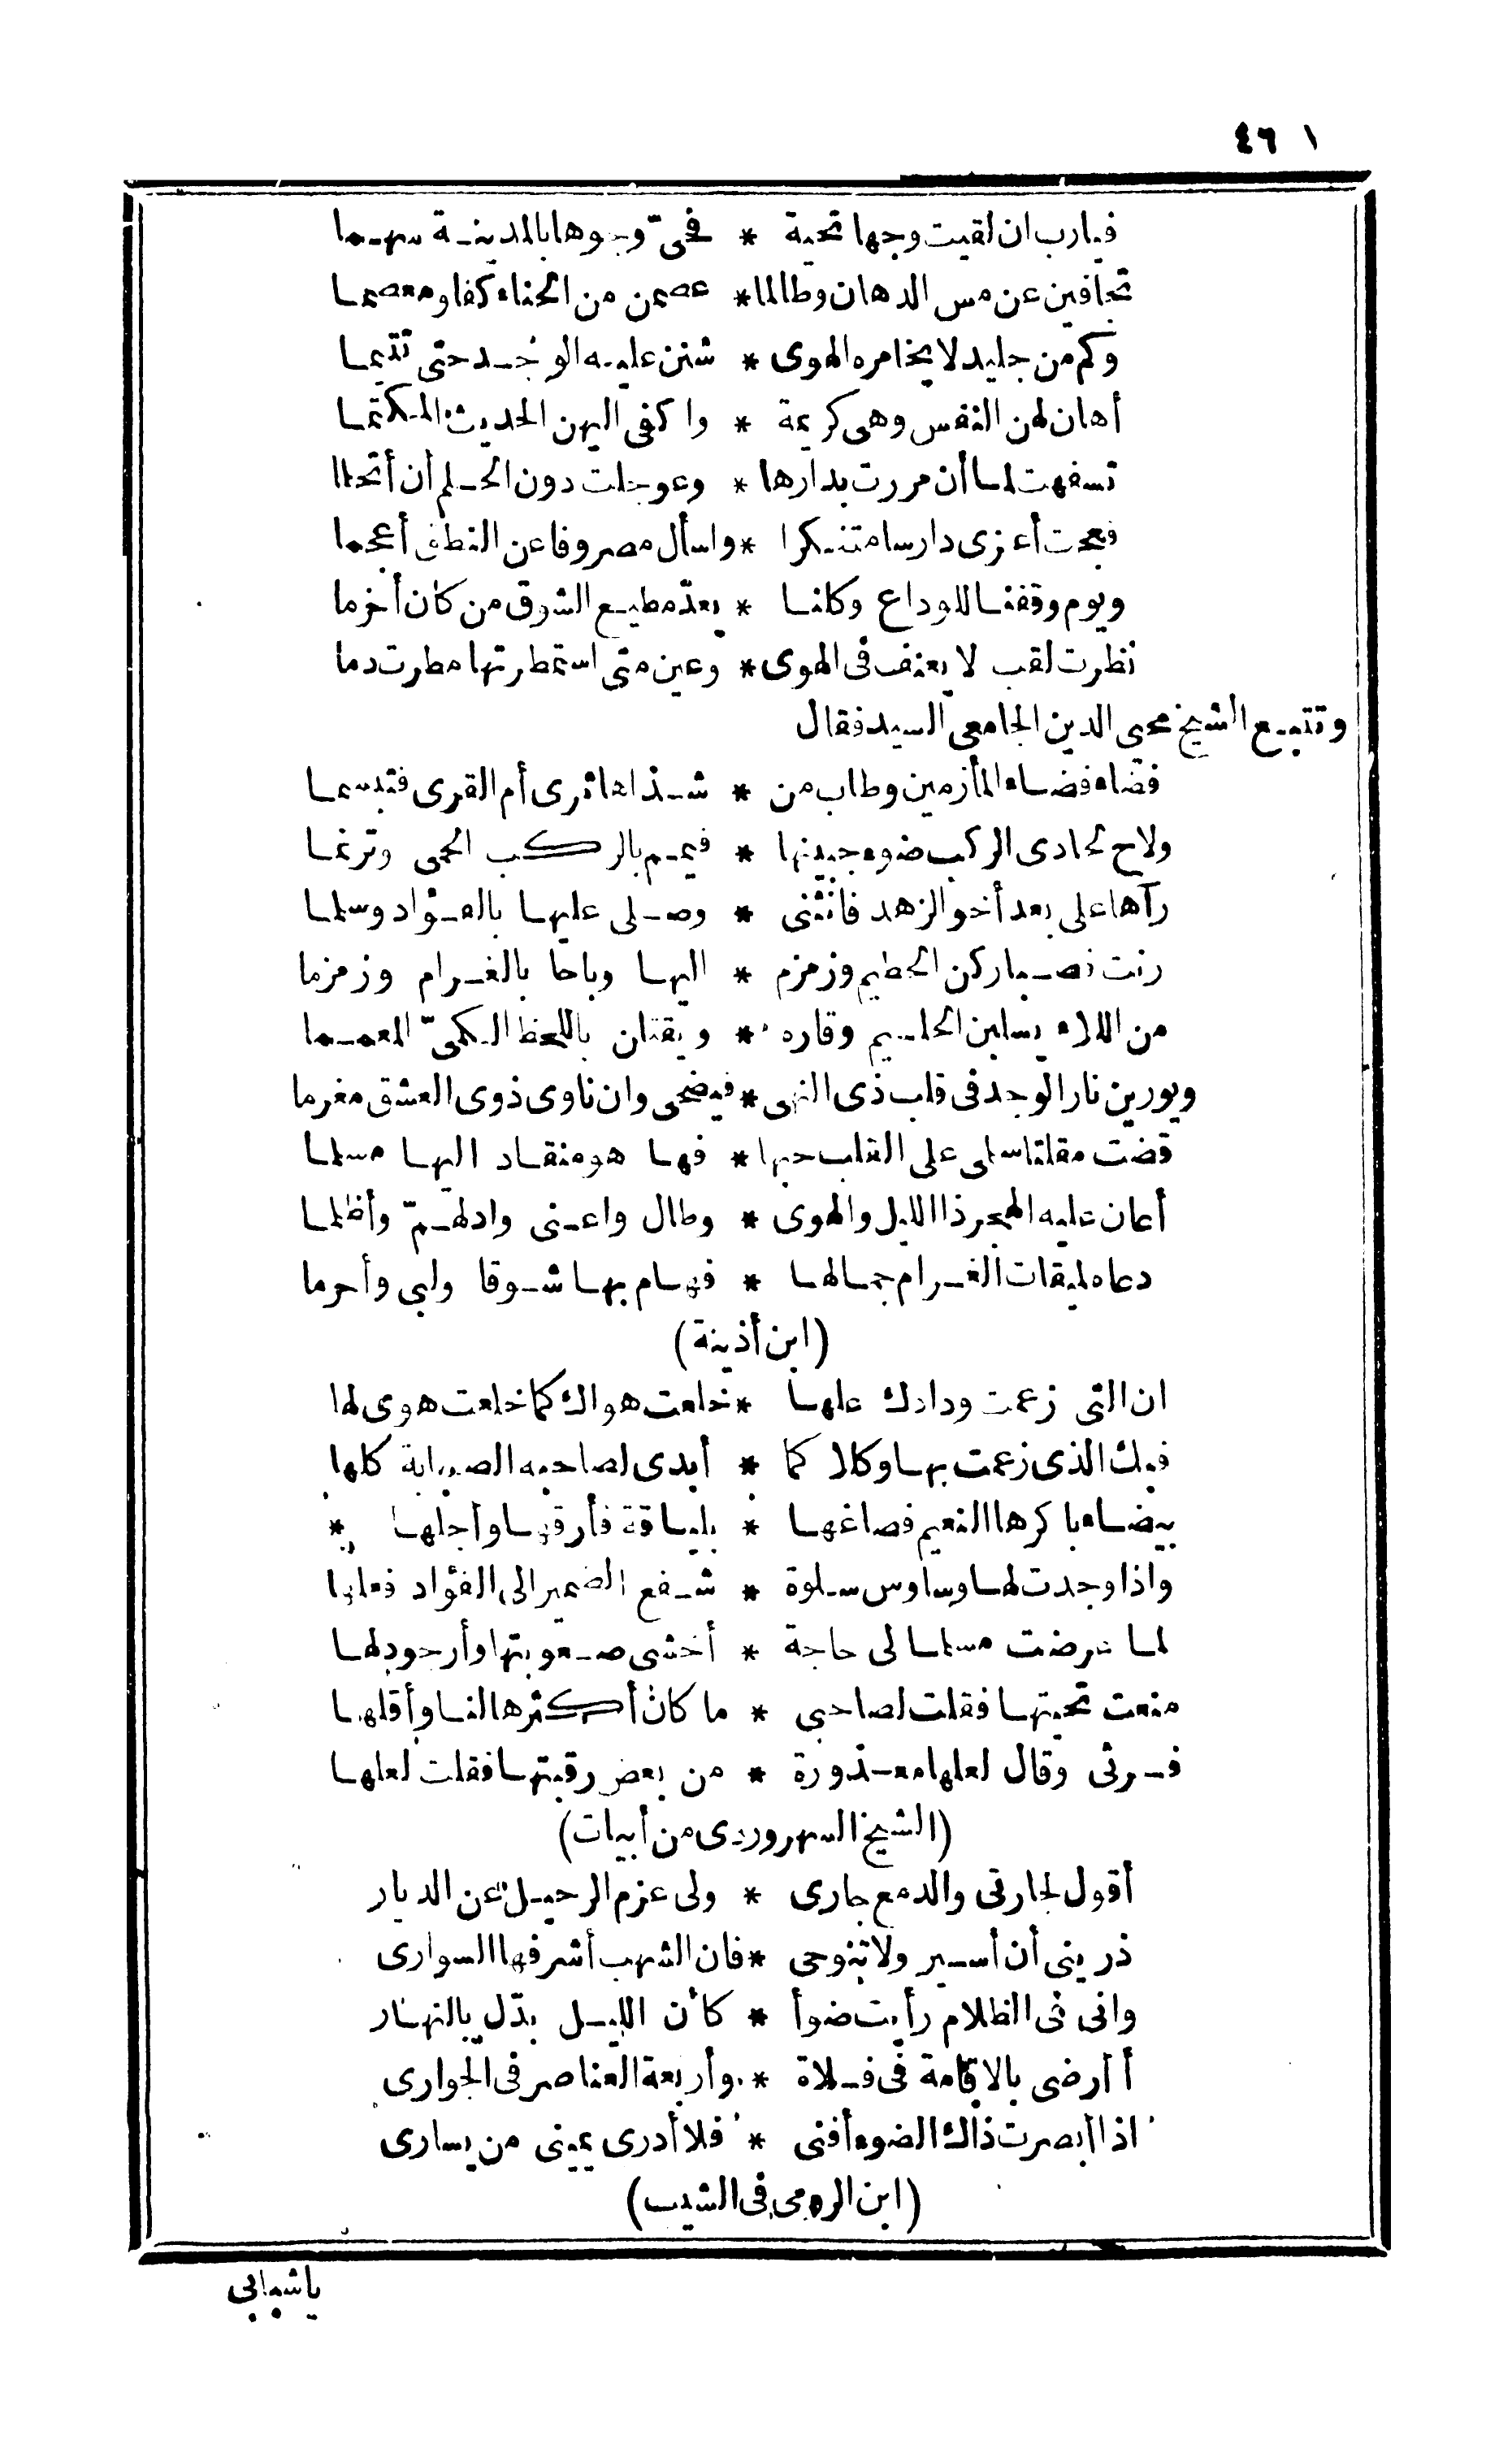 ٤٦١
فيا رب ان لقيت وجها تحية * فحيّ وجوها بالمدينة سهما
تجافين عن مس الدهان وطالما * عصمن من الحناء كفا ومعصما
وكم من جليد لا يخامره الهوى * شنن عليه الوجد حتى تتيما
أهان لهن النفس وهى كريمة * واكفى اليهن الحديث المكتما
تسفهت لما أن مررت بدارها * وعوجلت دون الحلم أن أتحلما
فعجت أعزى دارسا متنكرا * واسأل مصروفا عن النطق أعجما
ويوم وقفنا للوداع وكلنا * يعدّ مطيع الشوق من كان أخرما
نظرت لقب لا يعنف فى الهوى * وعين متى استمطرتها مطرت دما
وتتبع الشيخ محيى الدين الجامعى السيد فقال
فضاء فضاء المأزمين وطاب من * شذاها ثرى أم القرى فتبسما
ولاح لحادى الركب ضوء جبينها * فيمم بالركب الحمى وترنما
رآها على بعد أخو الزهد فانثنى * وصلى عليها بالفؤاد وسلما
رنت نصبا ركن الحطيم وزمزم * اليها وباحا بالغرام وزمزما
من اللاء يسلبن الحليم وقاره * ويقتلن باللحظ الكمىّ المعمما
ويورين نار الوجد فى قلب ذى النهى * فيضحى وان ناوى ذوى العشق مغرما
قضت مقلتا سلمى على القلب حبها * فها هو منقاد اليها مسلما
أعان عليه الهجر ذا الليل والهوى * وطال واعنى وادلهمّ وأظلما
دعاه لميقات الغرام جمالها * فهام بها شوقا ولبى وأحرما
(ابن أذينة)
ان التى زعمت ودادك علها * خلعت هواك كما خلعت هوى لها
فبك الذى زعمت بها وكلا كما * أبدى لصاحبه الصبابة كلها
بيضاء باكرها النعيم فصاغها * بلباقة فأرقها وأجلها *
واذا وجدت لها وساوس سلوة * شفع الضمير الى الفؤاد فعلها
لما عرضت مسلما لى حاجة * أخشى صعوبتها وأرجو دلها
منعت تحيتها فقلت لصاحبى * ما كان أكثرها لنا وأقلها
فرثى وقال لعلها معذورة * من بعض رقبتها فقلت لعلها
(الشيخ السهروردى من أبيات)
أقول لجارتى والدمع جارى * ولى عزم الرحيل عن الديار
ذرينى أن أسير ولا تنوحى * فان الشهب أشرفها السوارى
وانى فى الظلام رأيت ضوأ * كأن الليل بدّل بالنهار
أأرضى بالاقامة فى فلاة * وأربعة العناصر فى الجوارى
اذا أبصرت ذاك الضوء أفنى * فلا أدرى يمينى من يسارى
(ابن الرومى فى الشيب)
يا شبابى